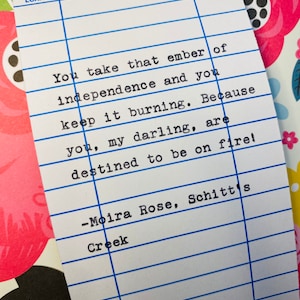 You take that ember of
independence and you
keep it burning. Because
you, my darling, are
destined to be on fire!
-Moira Rose, Schitt's
Creek